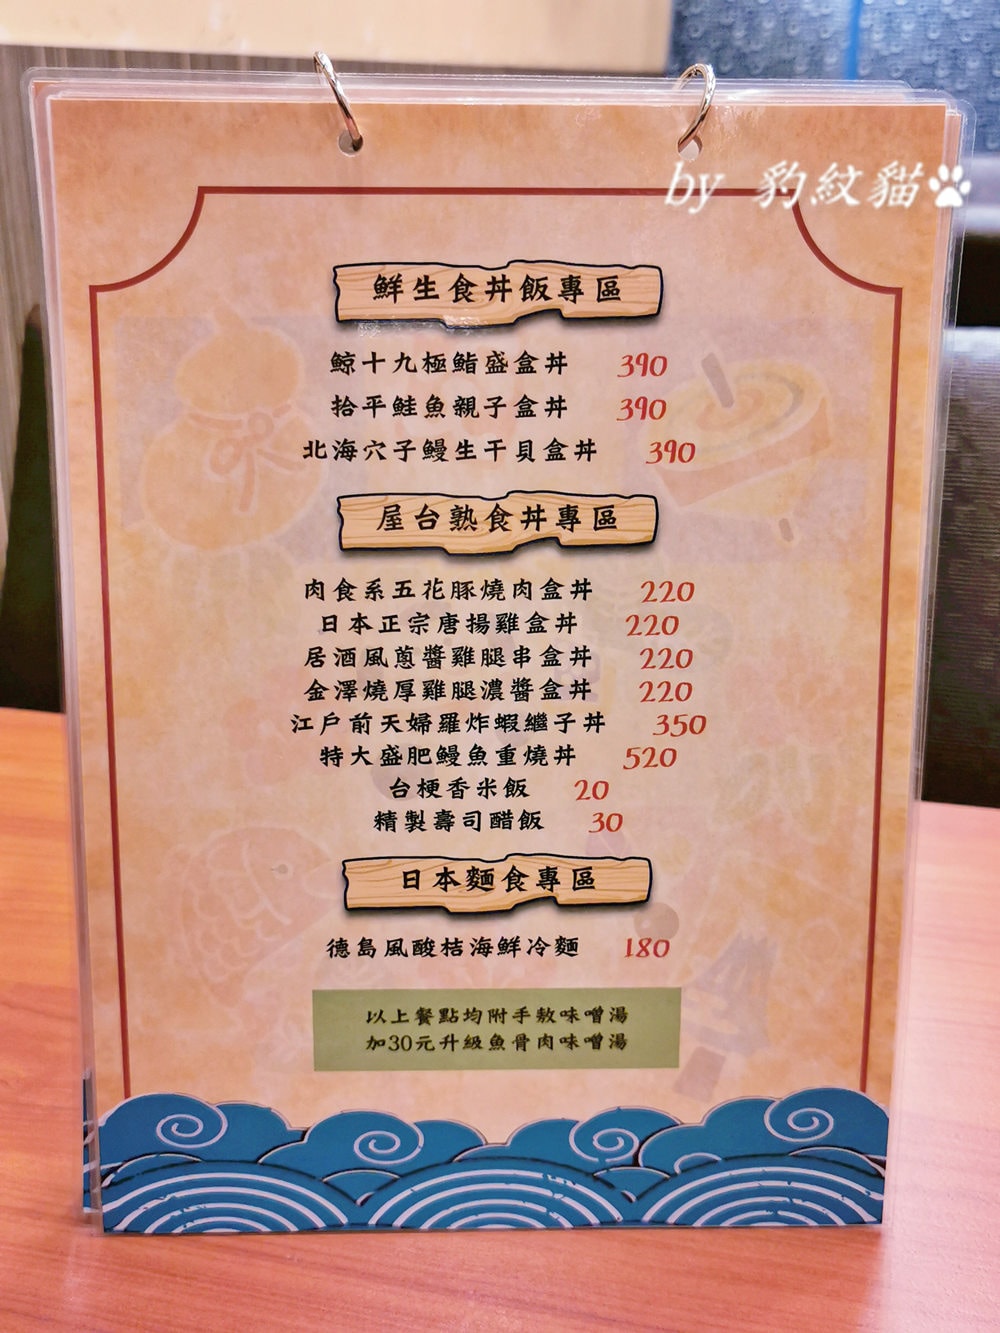 by 豹紋貓
鮮生食丼飯專區
鯨十九極鮨盛盒丼 390
拾平鮭魚親子盒丼 390
北海穴子鰻生干貝盒丼 390
屋台熟食丼專區
肉食系五花豚燒肉盒丼 220
日本正宗唐揚雞盒丼 220
居酒風蔥醬雞腿串盒丼 220
金澤燒厚雞腿濃醬盒丼 220
江戶前天婦羅炸蝦繼子丼 350
特大盛肥鰻魚重燒丼 520
台梗香米飯 20
精製壽司醋飯 30
日本麵食專區
德島風酸桔海鮮冷麵 180
以上餐點均附手敖味噌湯
加30元升級魚骨肉味噌湯